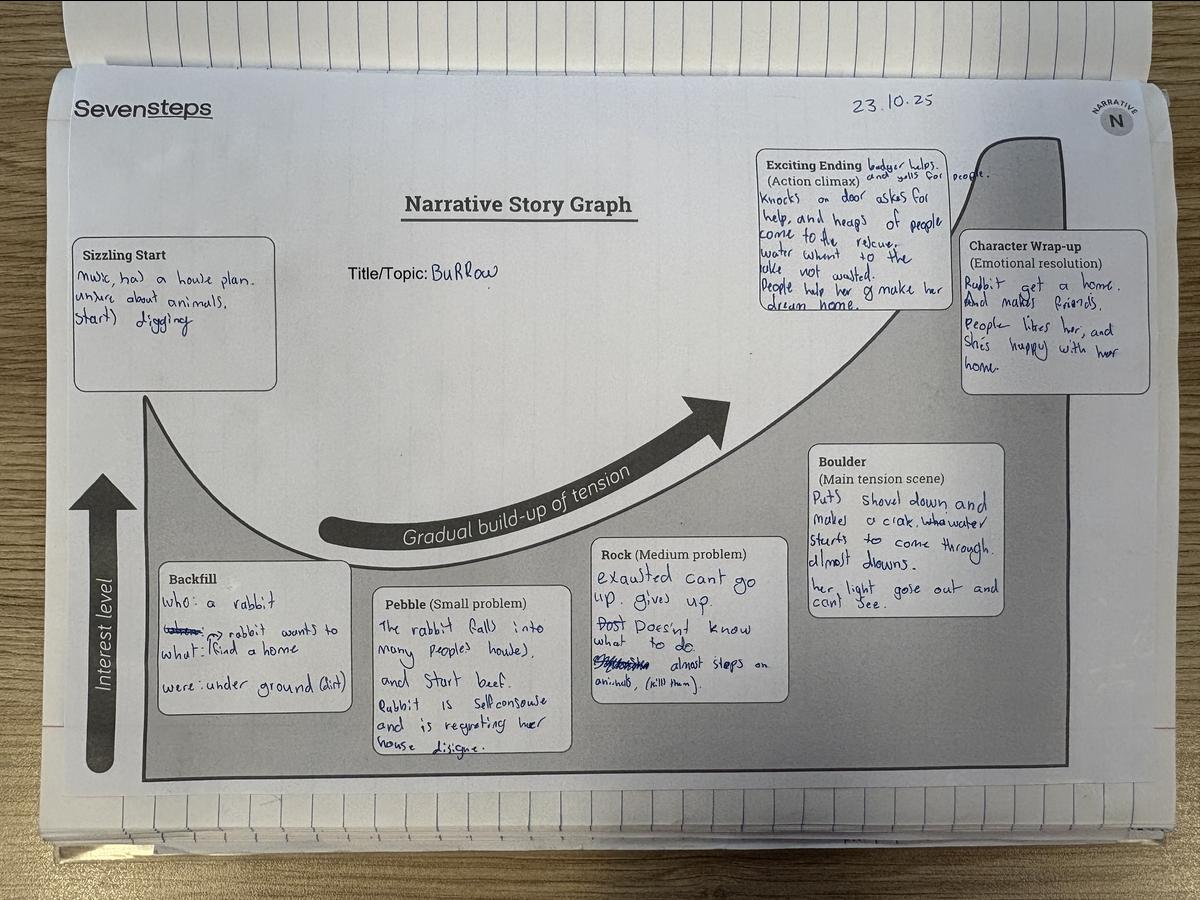 Sevensteps
23.10.25
NARRATIVE
N
Narrative Story Graph
Title/Topic: BuRRow
Sizzling Start
Music, has a house plan.
unsure about animals.
Starts digging
Interest level
Gradual build-up of tension
Backfill
who: a rabbit
what: rabbit wants to
find a home
were: under ground (dirt)
Pebble (Small problem)
The rabbit falls into
many peoples houses,
and start beef.
Rabbit is selfconsouse
and is regreting her
house disigne.
Rock (Medium problem)
exausted cant go
up. gives up.
Dost Does'nt know
what to do.
almost steps on
animals, (kill them).
Boulder
(Main tension scene)
Puts shovel down and
makes a crak. wha water
starts to come through.
almost drowns.
her light gose out and
cant see.
Exciting Ending badger helps.
(Action climax) and yells for people.
Knocks on door askes for
help, and heaps of people
come to the rescue.
water whent to the
lake not wasted.
People help her & make her
dream home.
Character Wrap-up
(Emotional resolution)
Rabbit get a home.
And makes friends.
People likes her, and
She's happy with her
home.